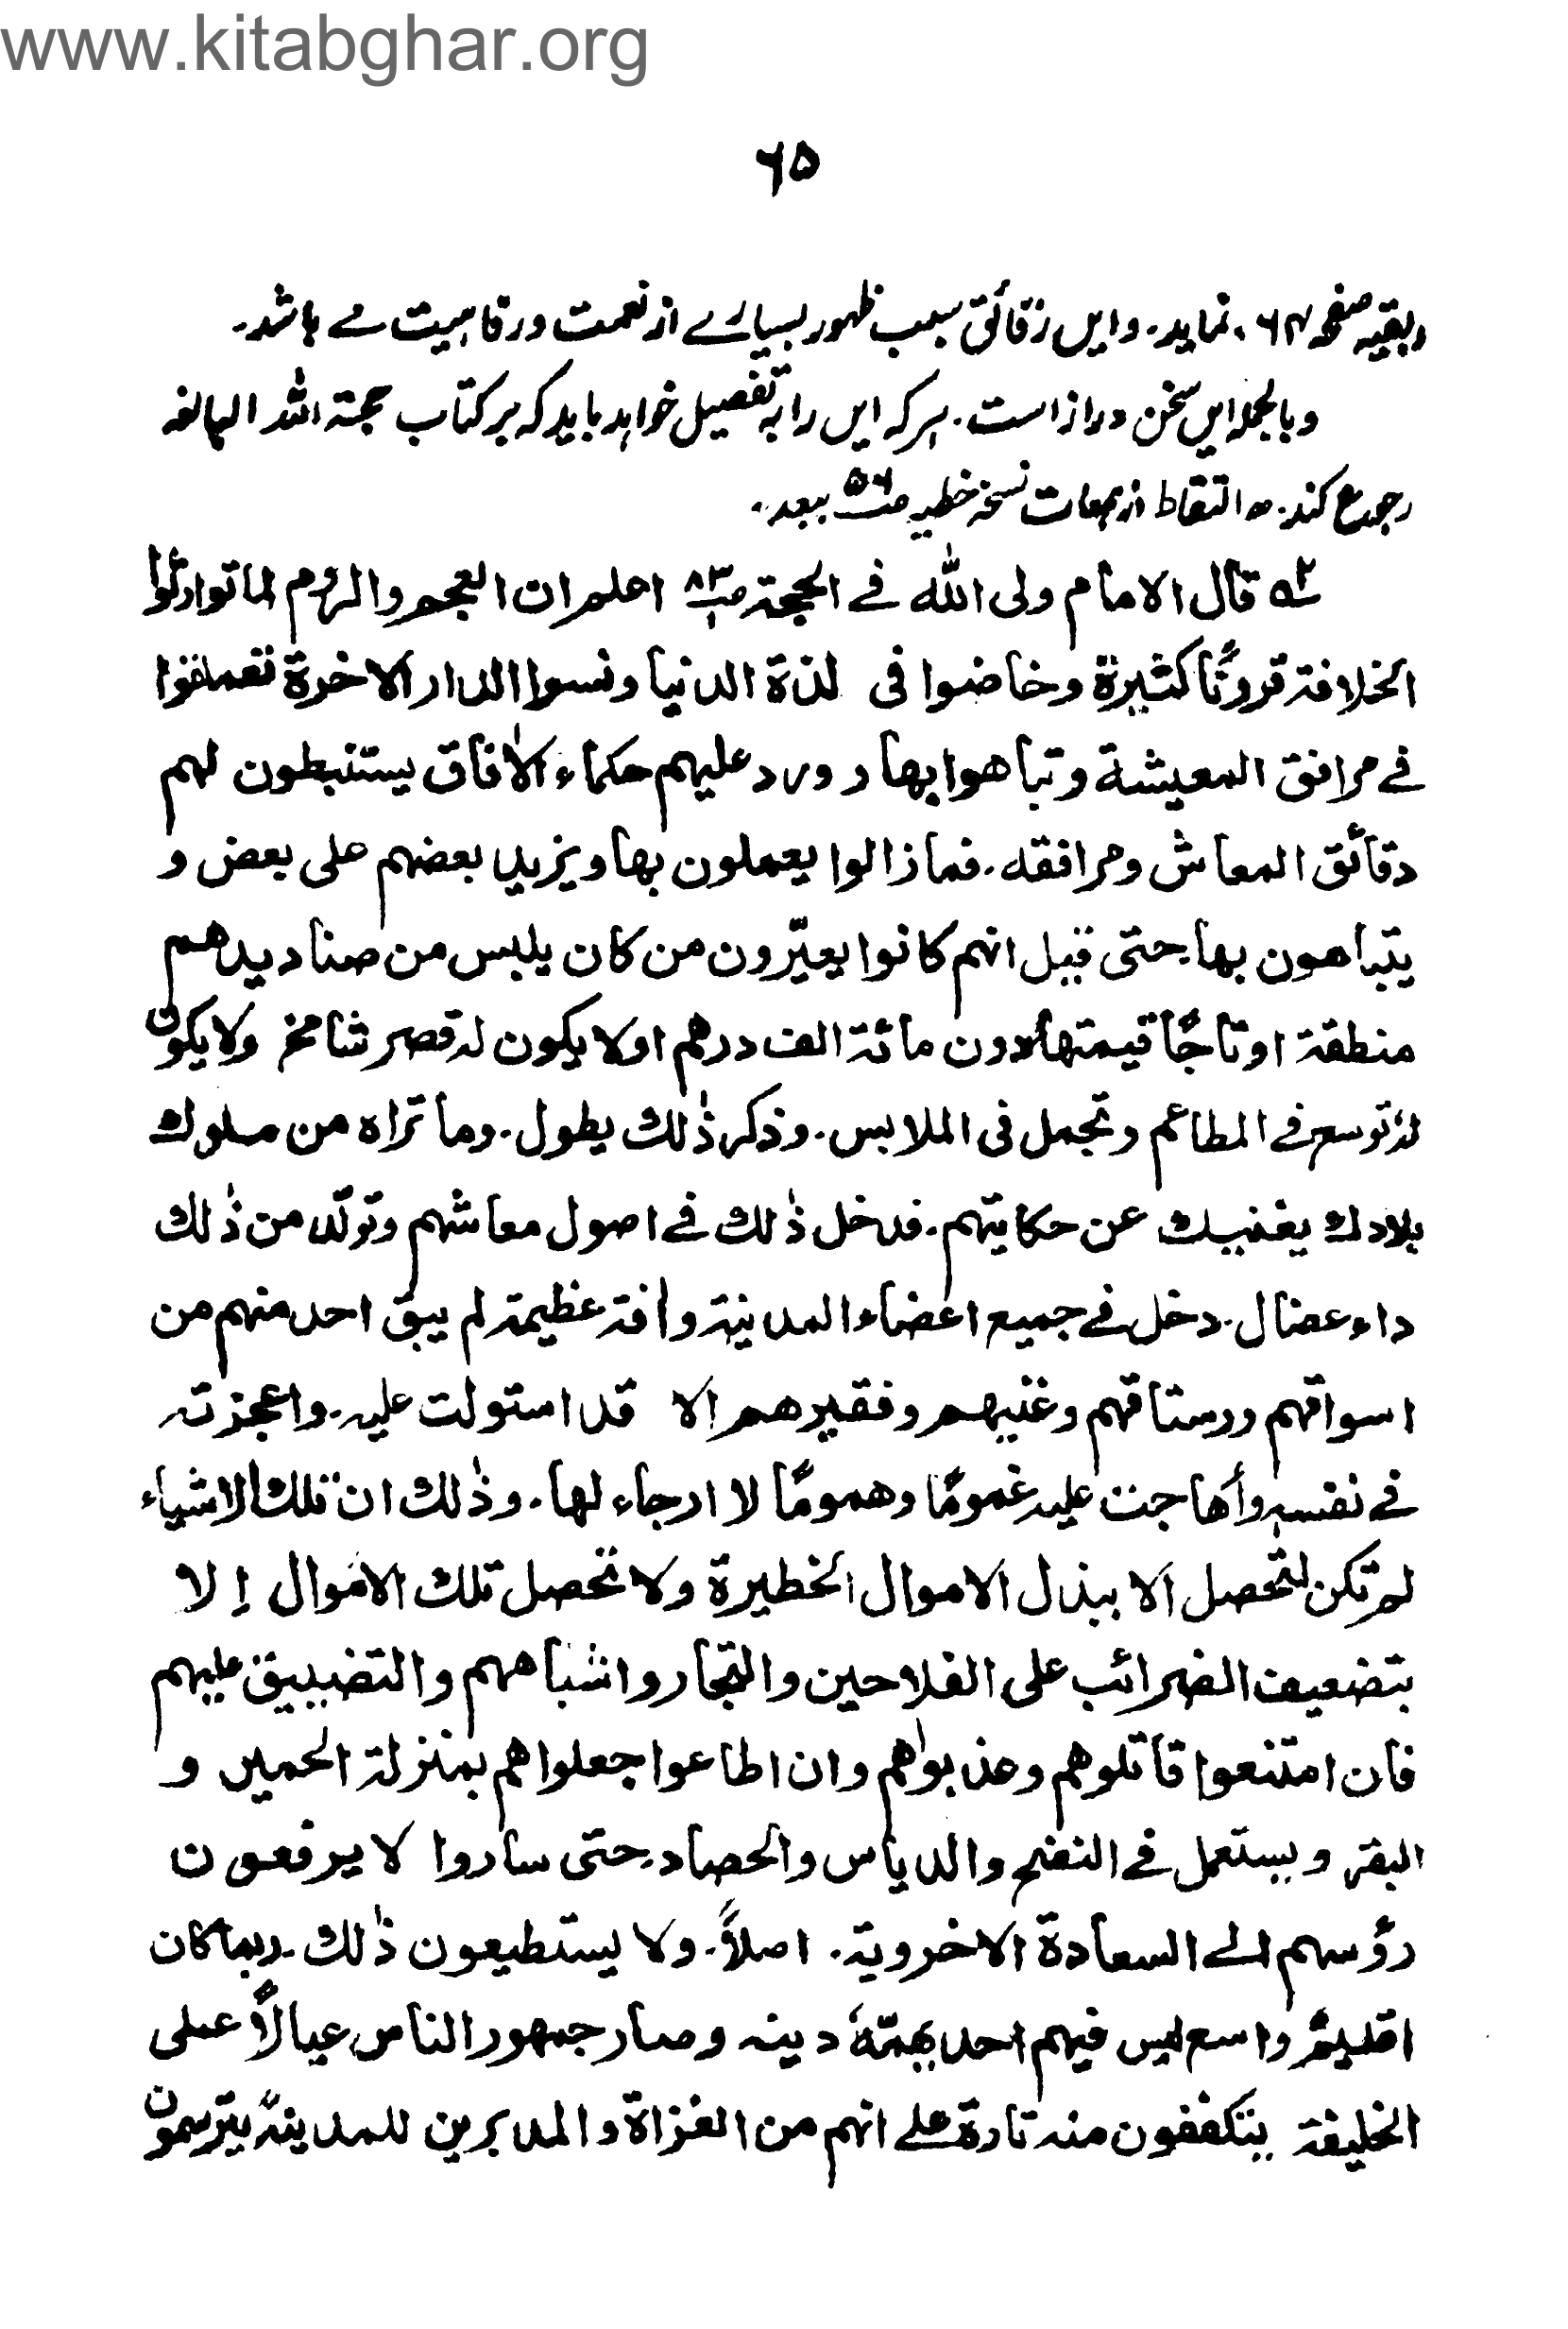 www.kitabghar.org
۶۵
(بقیہ صفحہ ۶۴) نماید۔ وایں زقائق سبب ظہور بسیارے از نعمت ورفاہیت مے باشد۔
وبالجملہ ایں سخن دراز است۔ ہر کہ ایں را بہ تفصیل خواہد باید کہ بر کتاب حجۃ اللہ البالغہ
رجوع کند۔ التقاط از ہمعات نسخہ خطیہ ببعد۔
قال الامام ولی اللہ فے الحجۃ اعلم ان العجم والروم لما توارثوا
الخلافۃ قرونًا کثیرۃ وخاضوا فی لذۃ الدنیا ونسوا الدار الاخرۃ تعمقوا
فے مرافق المعیشۃ وتباھوا بھا۔ وورد علیہم حکماء الاٰفاق یستنبطون لہم
دقائق المعاش ومرافقہ۔ فما زالوا یعملون بھا ویزید بعضہم علی بعض و
یتباھون بھا۔ حتی قیل انہم کانوا یعیّرون من کان یلبس من صنادیدھم
منطقۃ او تاجًا قیمتھا دون مائۃ الف درھم او لا یکون لہ قصر شامخ ولا یکون
لہ توسع فے المطاعم وتجمل فی الملابس۔ وذکر ذٰلک یطول۔ وما تراہ من ملوک
بلادک یغنیک عن حکایتہم۔ فدخل ذٰلک فے اصول معاشہم وتولّد من ذٰلک
داء عضال۔ دخل فے جمیع اعضاء المدینۃ واٰفۃ عظیمۃ لم یبق احد منہم من
اسواقہم ورستاقہم وغنیہم وفقیرھم الا قد استولت علیہ۔ واعجزتہ
فے نفسہٖ وأھاجت علیہ غمومًا وھمومًا لا ارجاء لھا۔ وذٰلک ان تلک الاشیاء
لم تکن لتحصل الا ببذل الاموال الخطیرۃ ولا تحصل تلک الاموال إلا
بتضعیف الضرائب علی الفلاحین والتجار واشباھہم والتضییق علیہم
فان امتنعوا قاتلوھم وعذبوٰھم وان اطاعوا جعلواھم بمنزلۃ الحمیر و
البقر ویستعمل فے النضح والدیاس والحصاد۔ حتی ساروا لا یرفعون
رؤسہم الے السعادۃ الاخرویۃ۔ اصلاً۔ ولا یستطیعون ذٰلک۔ ربما کان
اقلیمٌ واسع لیس فیہم احد یھمّہٗ دینہ وصار جمہور الناس عیالاً علی
الخلیفۃ یتکففون منہ تارۃ علے انہم من الغزاۃ والمدبرین للمدینۃ یترسمون